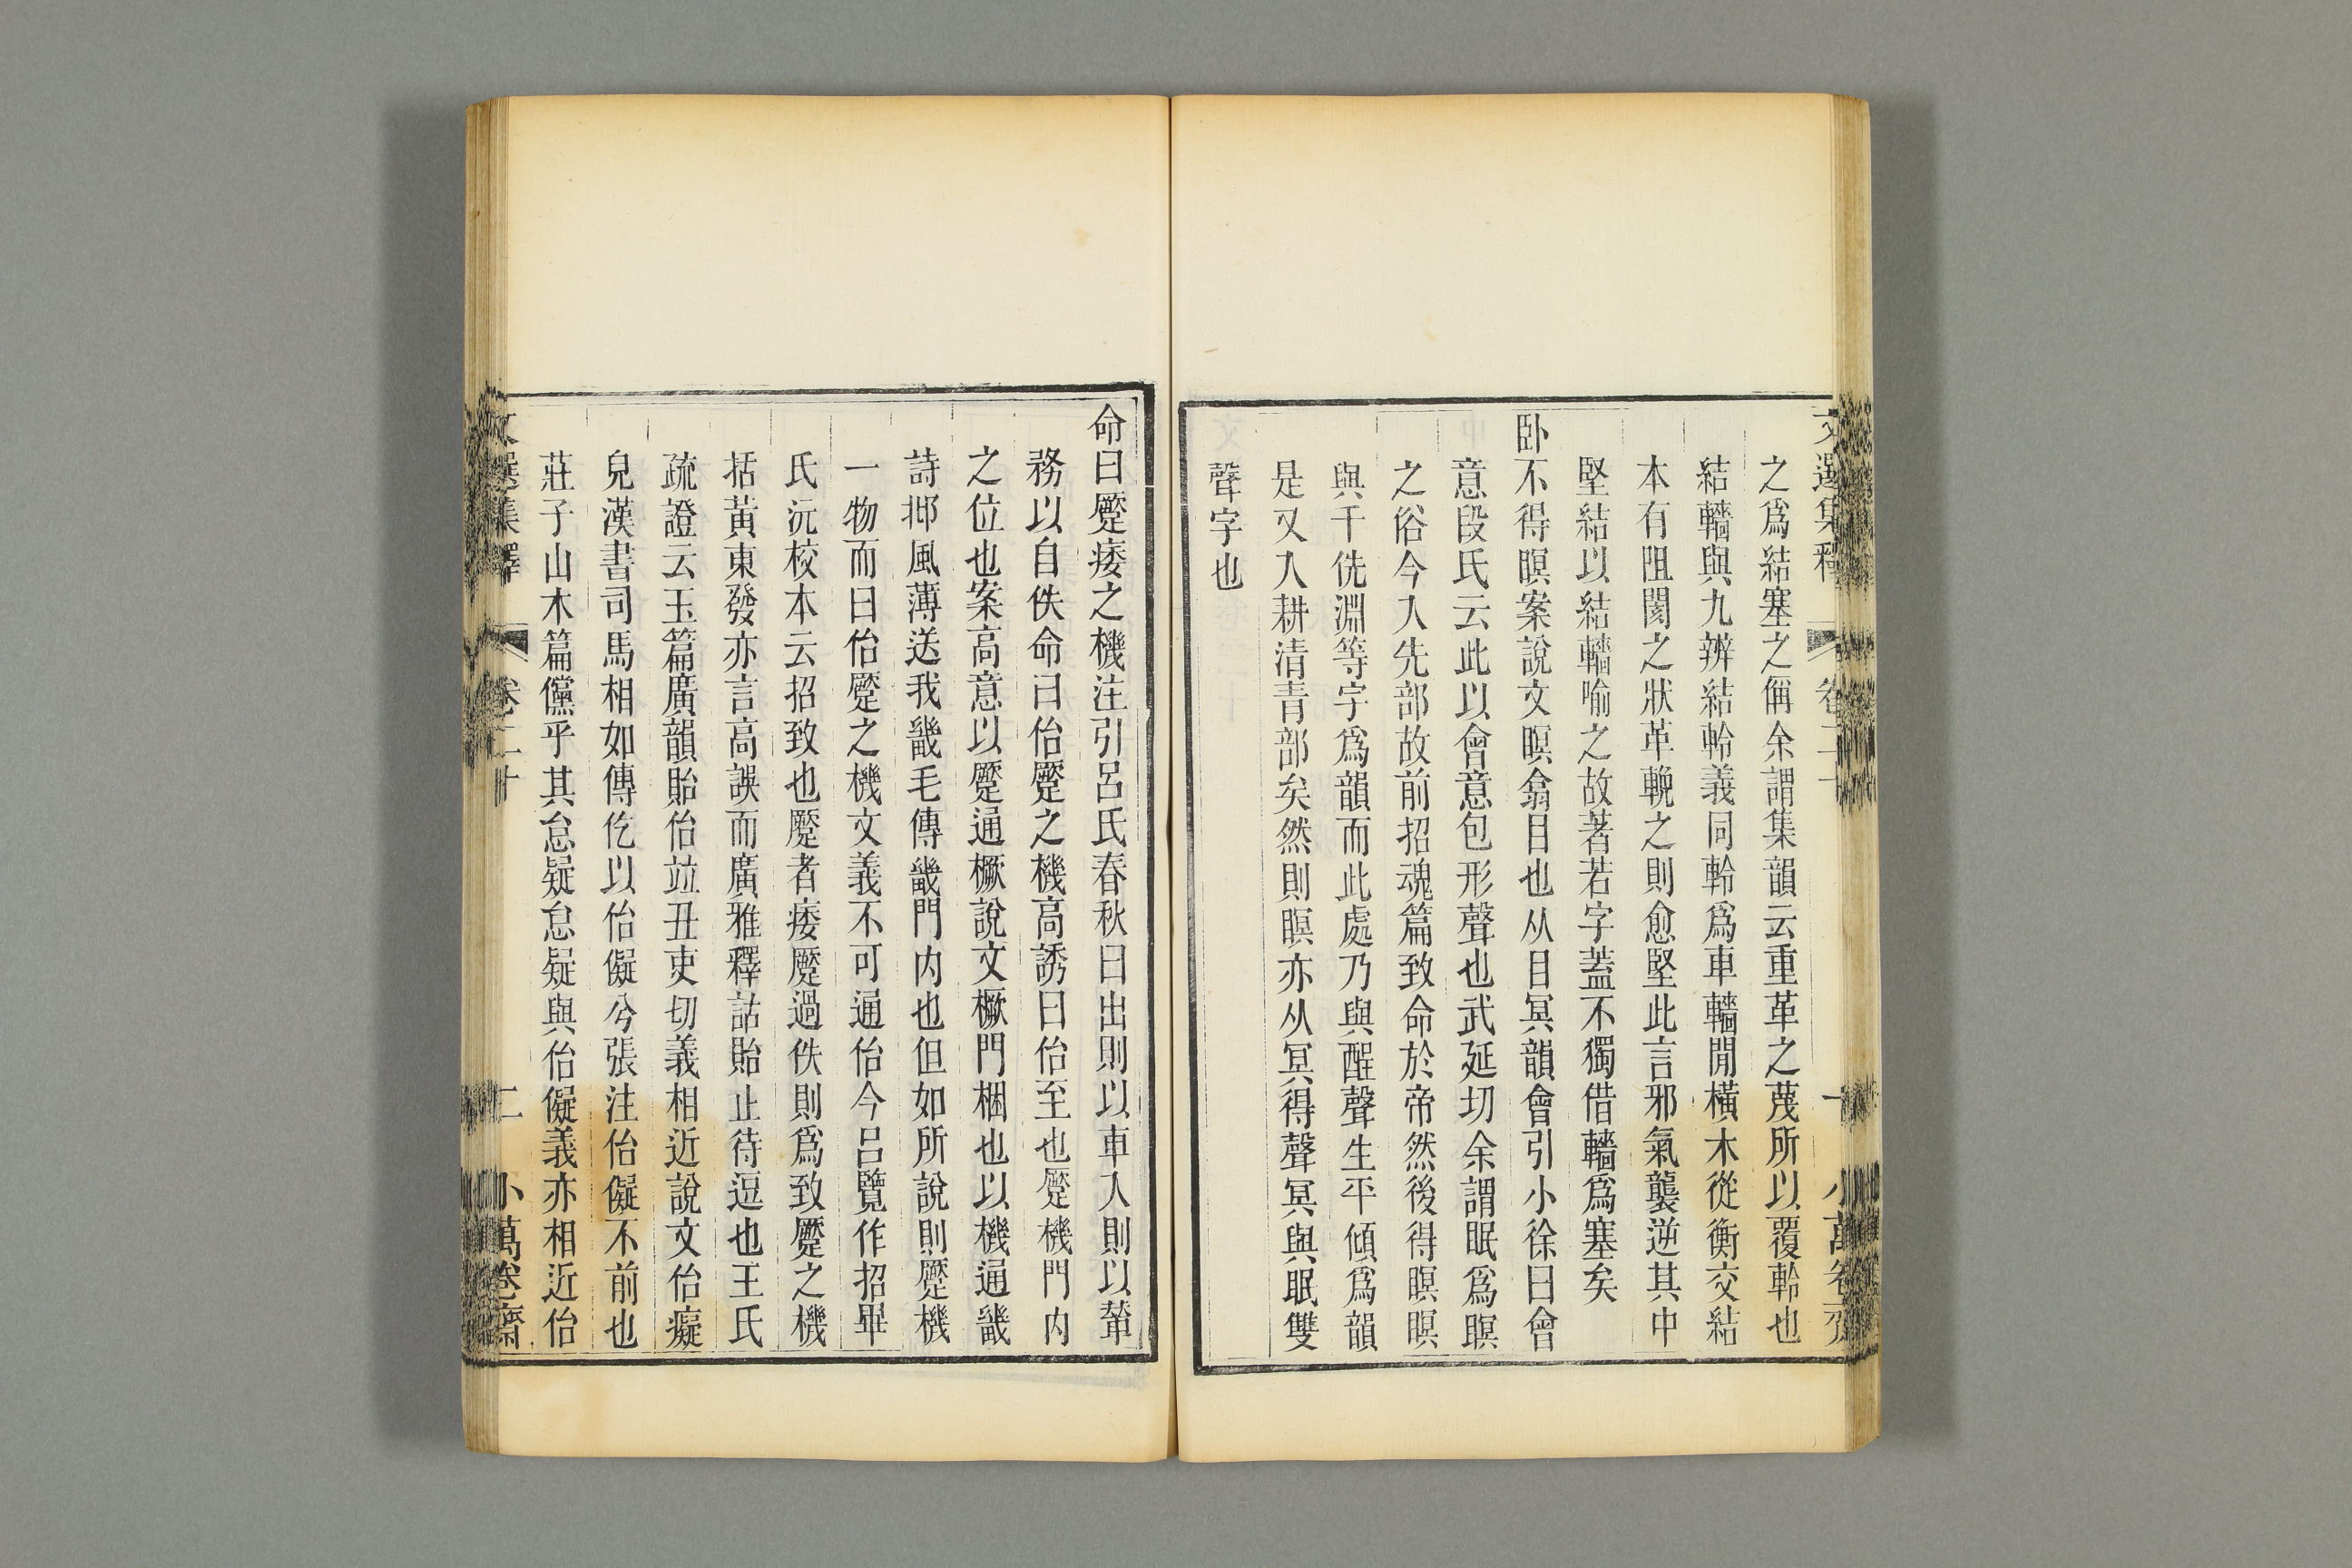 文選集釋 卷二十 一 小萬卷齋
之爲結塞之偁余謂集韻云重革之蔑所以覆軨也
結轖與九辨結軨義同軨爲車轖閒橫木從衡交結
本有阻閡之狀革輓之則愈堅此言邪氣襲逆其中
堅結以結轖喻之故著若字蓋不獨借轖爲塞矣
臥不得瞑案說文瞑翕目也从目冥韻會引小徐曰會
意段氏云此以會意包形聲也武延切余謂眠爲瞑
之俗今入先部故前招魂篇致命於帝然後得瞑瞑
與千侁淵等字爲韻而此處乃與酲聲生平傾爲韻
是又入耕清青部矣然則瞑亦从冥得聲冥與眠雙
聲字也
命曰蹷痿之機注引呂氏春秋曰出則以車入則以輦
務以自佚命曰佁蹷之機高誘曰佁至也蹷機門内
之位也案高意以蹷通橛說文橛門梱也以機通畿
詩邶風薄送我畿毛傳畿門内也但如所說則蹷機
一物而曰佁蹷之機文義不可通佁今呂覽作招畢
氏沅校本云招致也蹷者痿蹷過佚則爲致蹷之機
括黃東發亦言高誤而廣雅釋詁貽止待逗也王氏
疏證云玉篇廣韻貽佁竝丑吏切義相近說文佁癡
皃漢書司馬相如傳仡以佁儗兮張注佁儗不前也
莊子山木篇儻乎其怠疑怠疑與佁儗義亦相近佁
文選集釋 卷二十 二 小萬卷齋